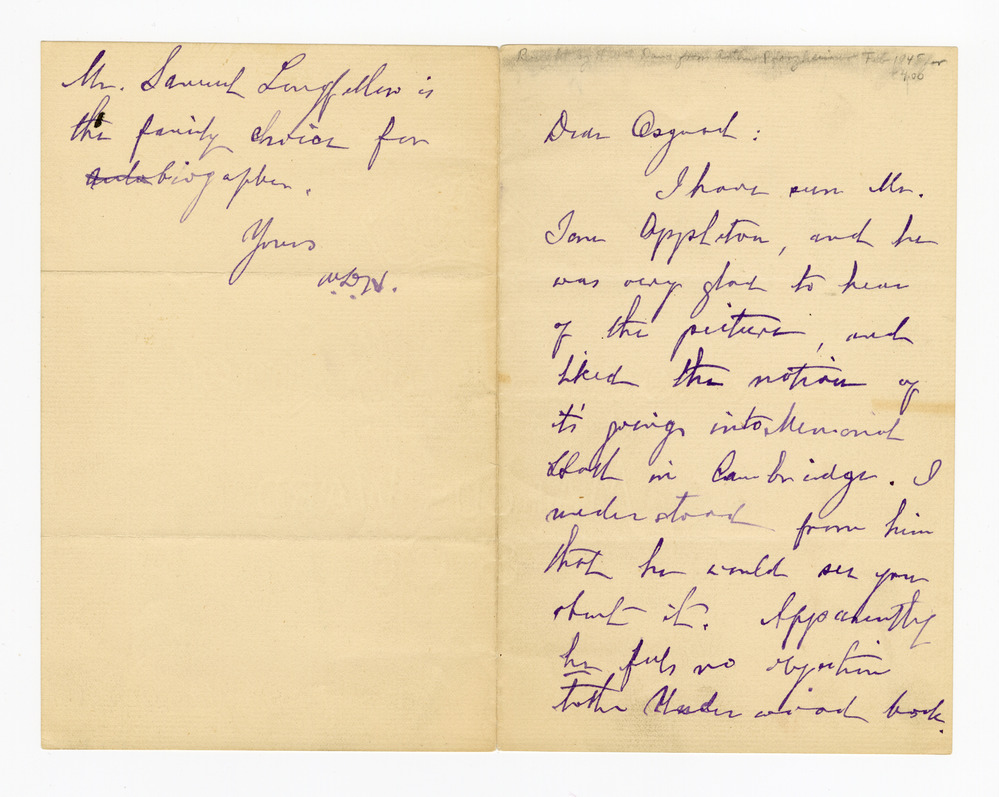 Dear Osgood:
I have seen Mr.
Tom Appleton, and he
was very glad to hear
of the picture, and
liked the notion of
it's going into Memorial
Hall in Cambridge. I
understood from him
that he would see you
about it. Apparently
he feels no objection
to the Underwood book.
Mr. Samuel Longfellow is
the family choice for
autobiographer.
Yours
W.D.H.
Bought by from Feb 1945 for
4.00